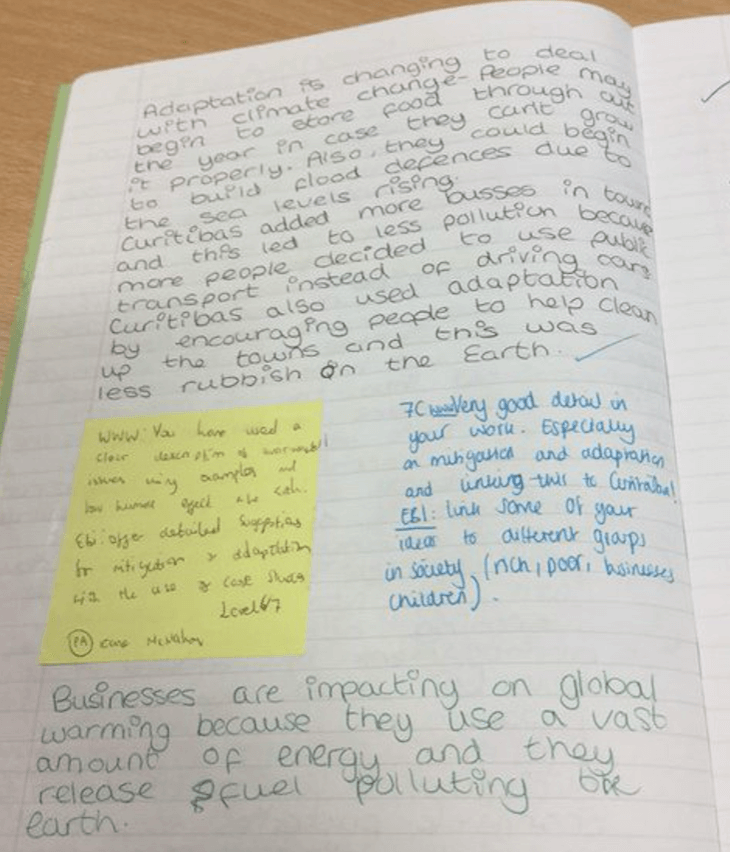 Adaptation is changing to deal
with climate change - People may
begin to store food through out
the year in case they cant grow
it properly. Also, they could begin
to build flood defences due to
the sea levels rising.
Curitibas added more busses in towns
and this led to less pollution because
more people decided to use public
transport instead of driving cars
Curitibas also used adaptation
by encouraging people to help clean
up the towns and this was
less rubbish on the Earth.
WWW: You have used a
clear description of
issues using examples and
how humans the
Ebi: offer detailed suggestions
for mitigation & adaptation
with the use of case studies
Level 6/7
PA
7C Very good detail in
your work. Especially
on mitigation and adaptation
and linking this to Curitiba!
EBI: link some of your
ideas to different groups
in society (rich, poor, businesses
children).
Businesses are impacting on global
warming because they use a vast
amount of energy and they
release fuel polluting the
earth.